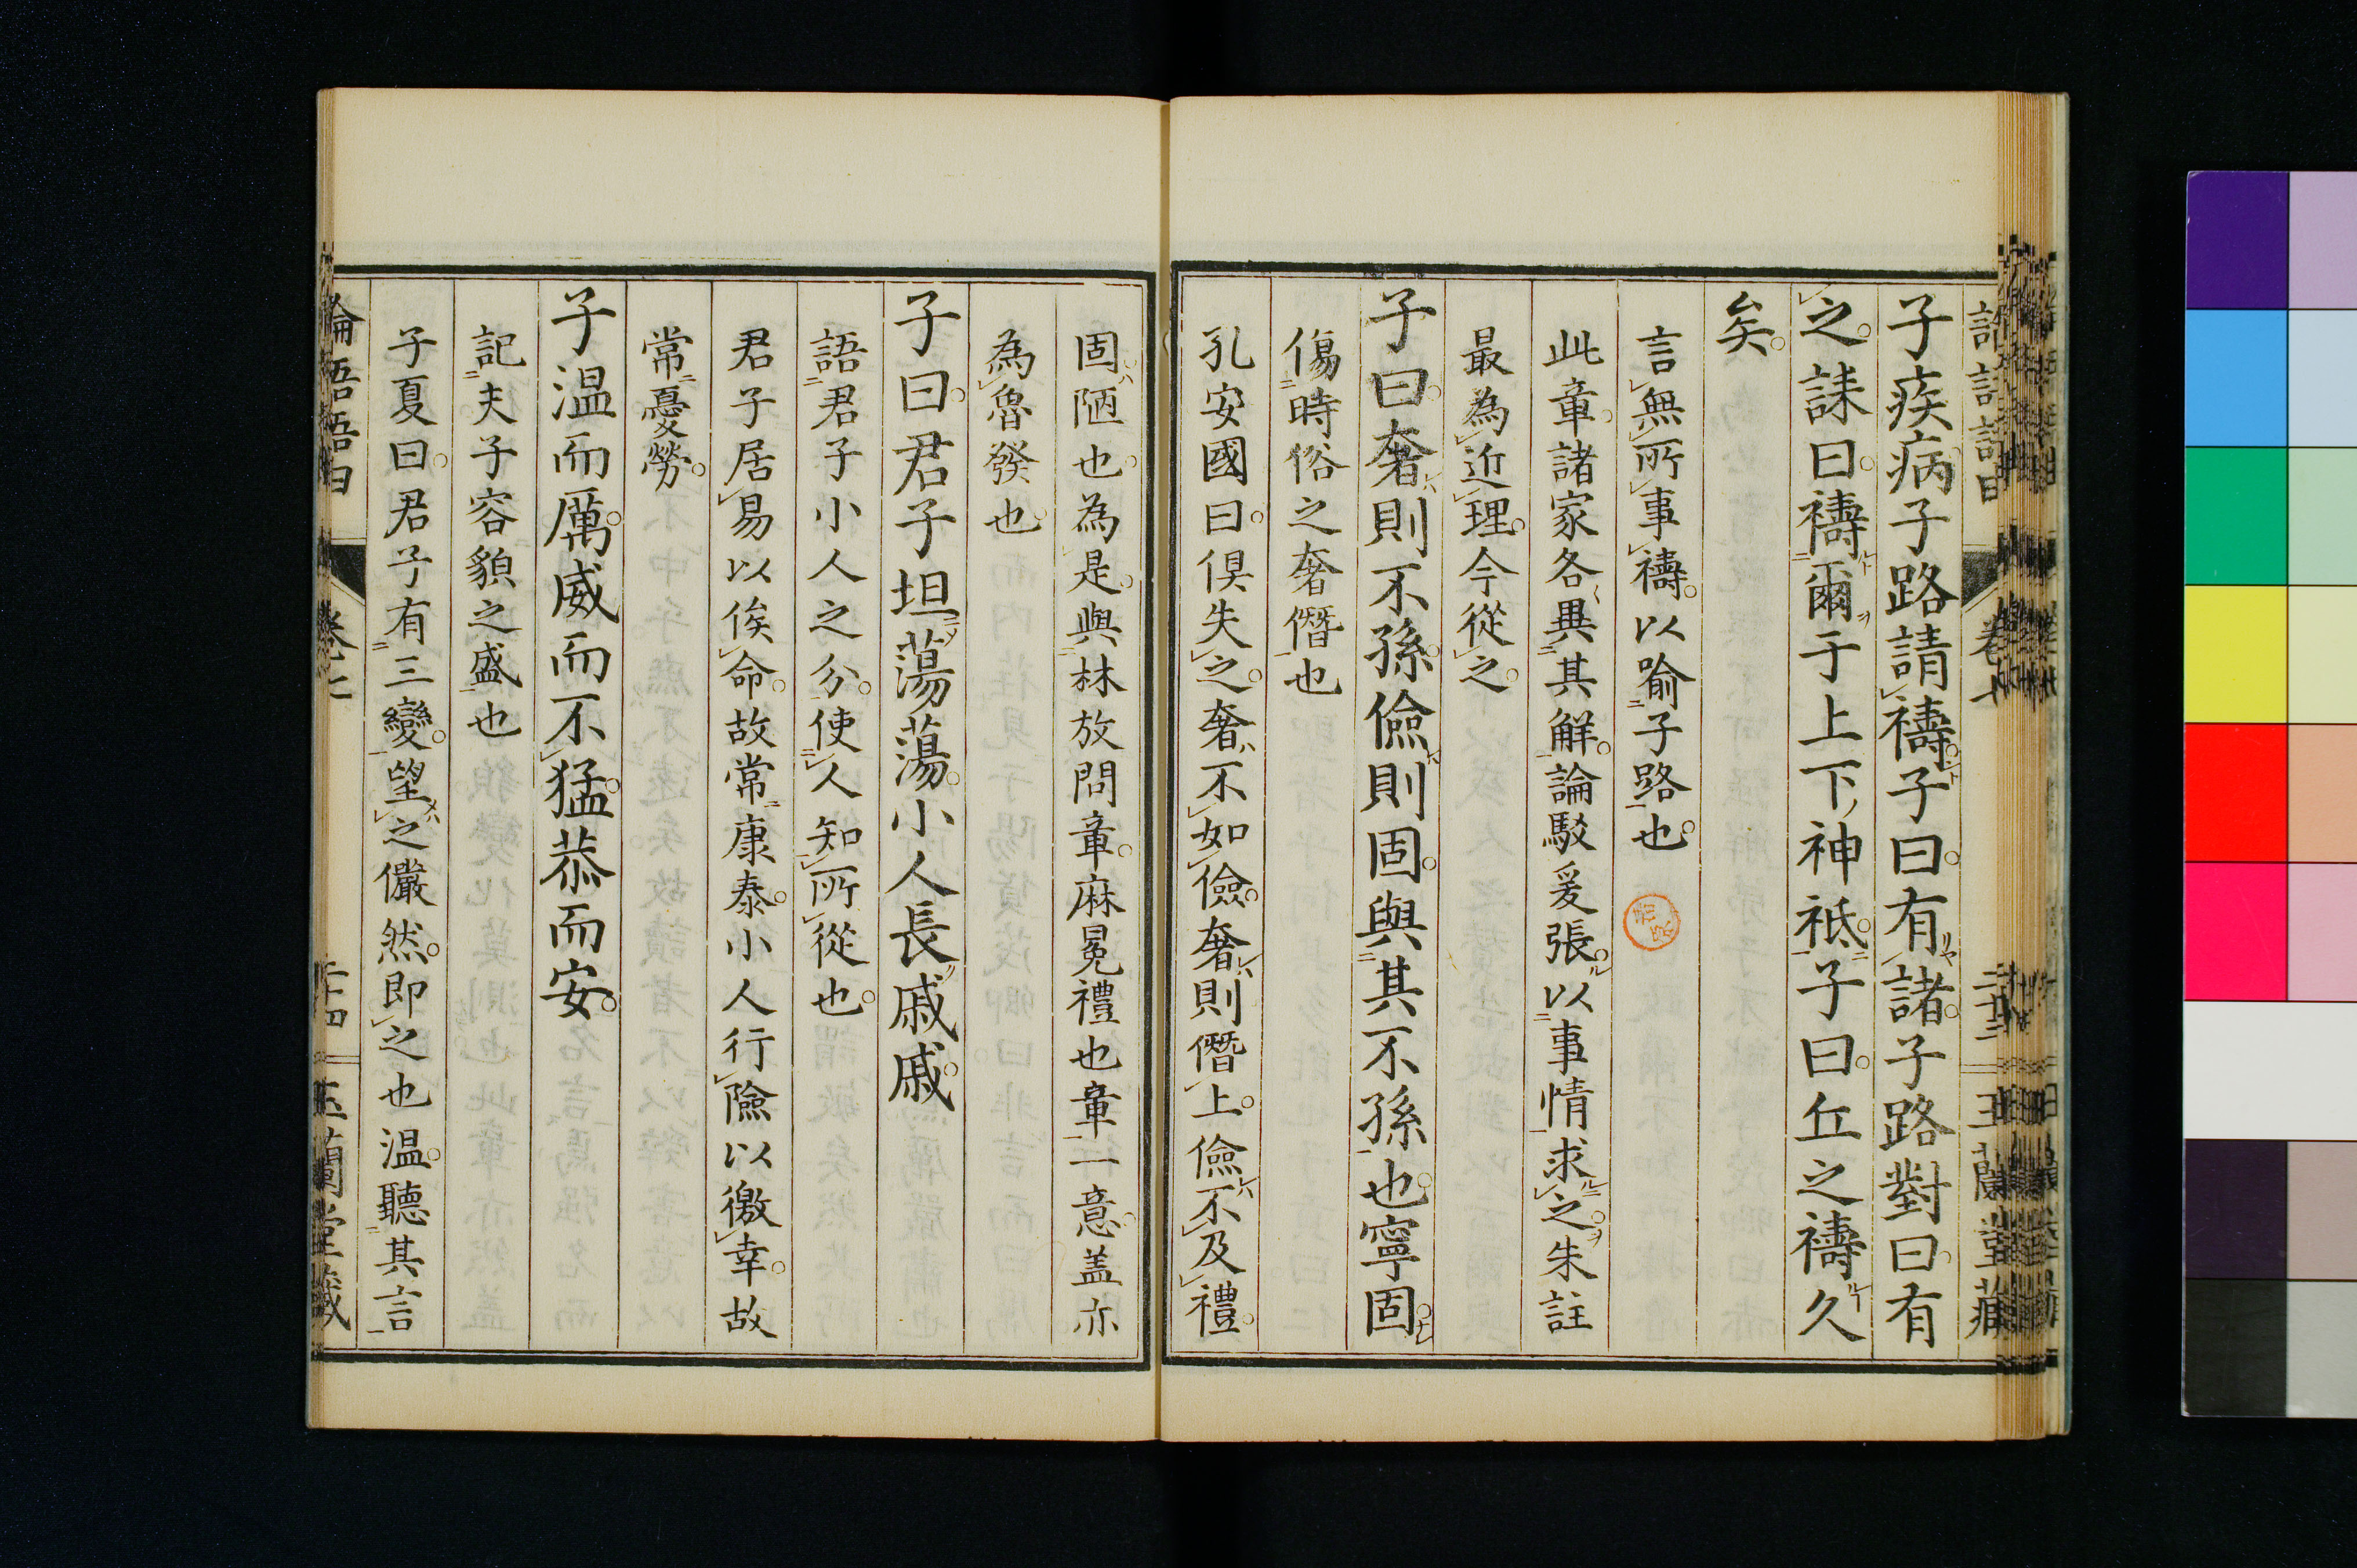 子疾病子路請禱子曰有諸子路對曰有
之誄曰禱爾于上下神祇子曰丘之禱久
矣
言無所事禱以喻子路也
此章諸家各異其解論駁爰張以事情求之朱註
最為近理今從之
子曰奢則不孫儉則固與其不孫也寧固
傷時俗之奢僭也
孔安國曰俱失之奢不如儉奢則僭上儉不及禮
固陋也為是與林放問章麻冕禮也章一意盖亦
為魯發也
子曰君子坦蕩蕩小人長戚戚
語君子小人之分使人知所從也
君子居易以俟命故常康泰小人行險以徼幸故
常憂勞
子温而厲威而不猛恭而安
記夫子容貌之盛也
子夏曰君子有三變望之儼然即之也温聽其言